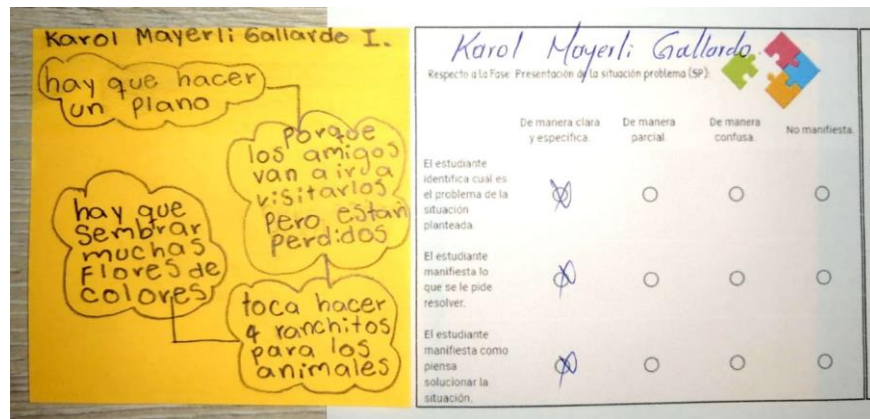 Karol Mayerli Gallardo I.
hay que hacer
un plano
porque
los amigos
van a ir a
visitarlos
pero estan
perdidos
hay que
sembrar
muchas
Flores de
colores
toca hacer
4 ranchitos
para los
animales
Karol Mayerli Gallardo
Respecto a la Fase: Presentación de la situación problema (SP):
De manera clara
y especifica.
De manera
parcial.
De manera
confusa.
No manifiesta.
El estudiante
identifica cual es
el problema de la
situación
planteada.
El estudiante
manifiesta lo
que se le pide
resolver.
El estudiante
manifiesta como
piensa
solucionar la
situación.